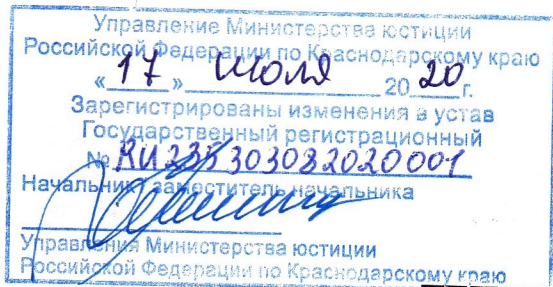 Управление Министерства юстиции
Российской Федерации по Краснодарскому краю
«17» июля 2020г.
Зарегистрированы изменения в устав
Государственный регистрационный
№ RU235303082020001
Начальник, заместитель начальника
Управления Министерства юстиции
Российской Федерации по Краснодарскому краю